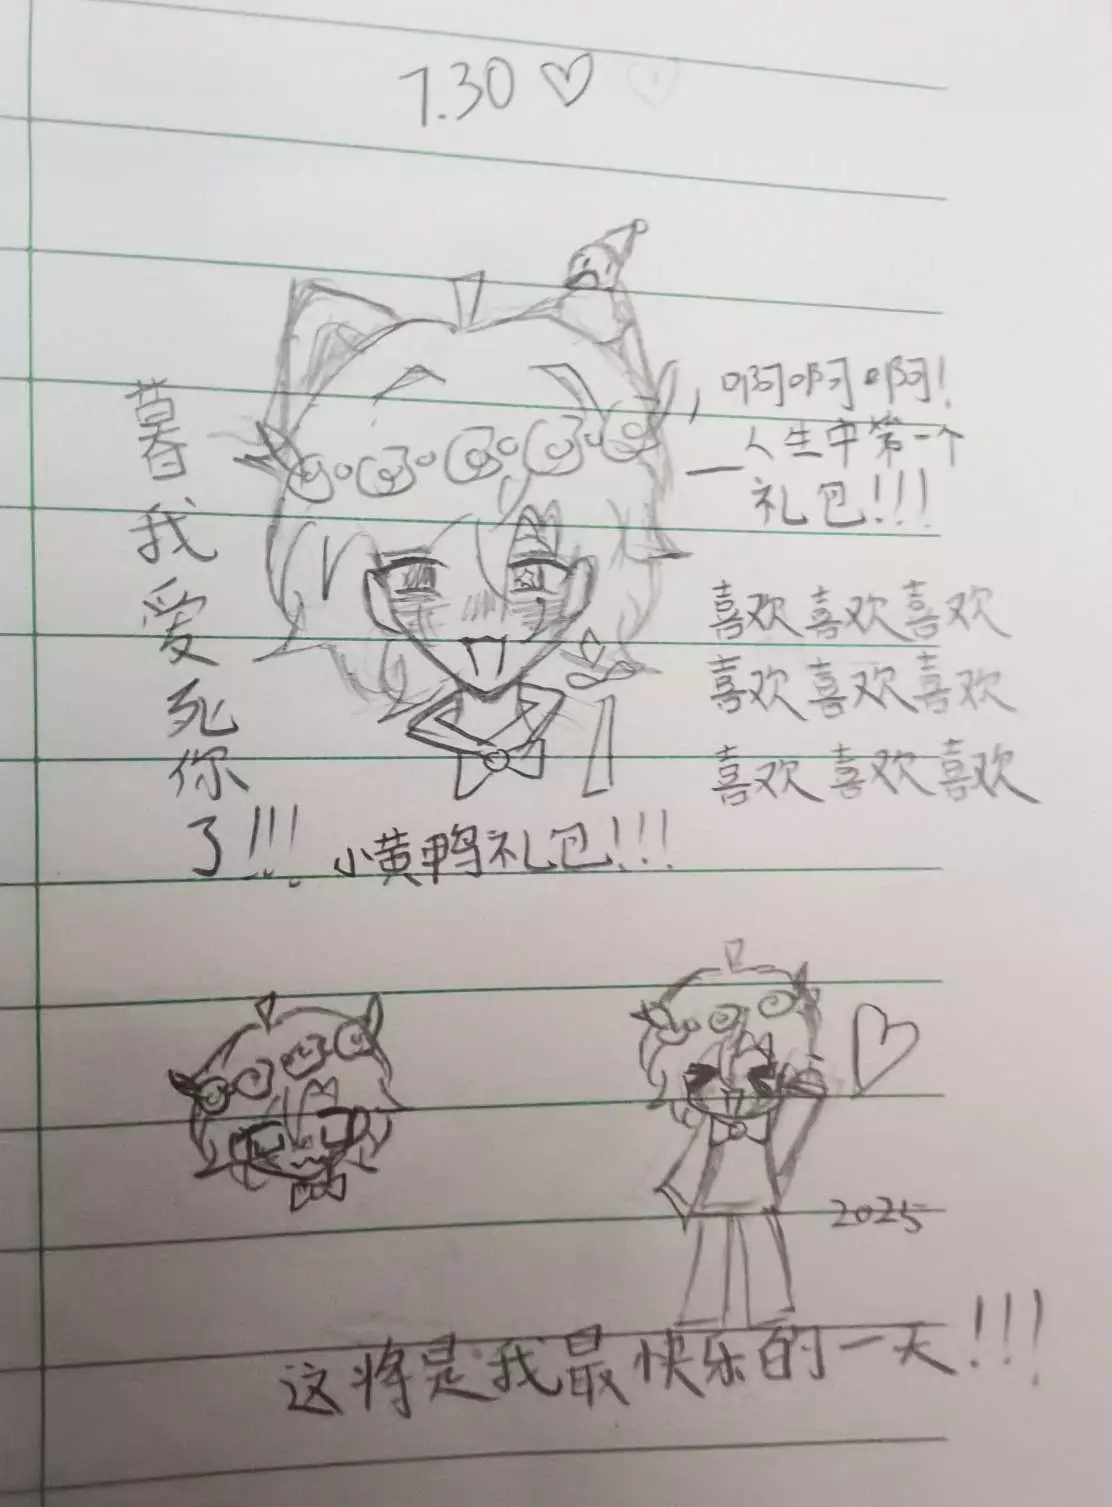 7.30♡
暮我爱死你了!!!
,啊啊啊!
人生中第一个
礼包!!!
喜欢喜欢喜欢
喜欢喜欢喜欢
喜欢喜欢喜欢
小黄鸭礼包!!!
2025
这将是我最快乐的一天!!!